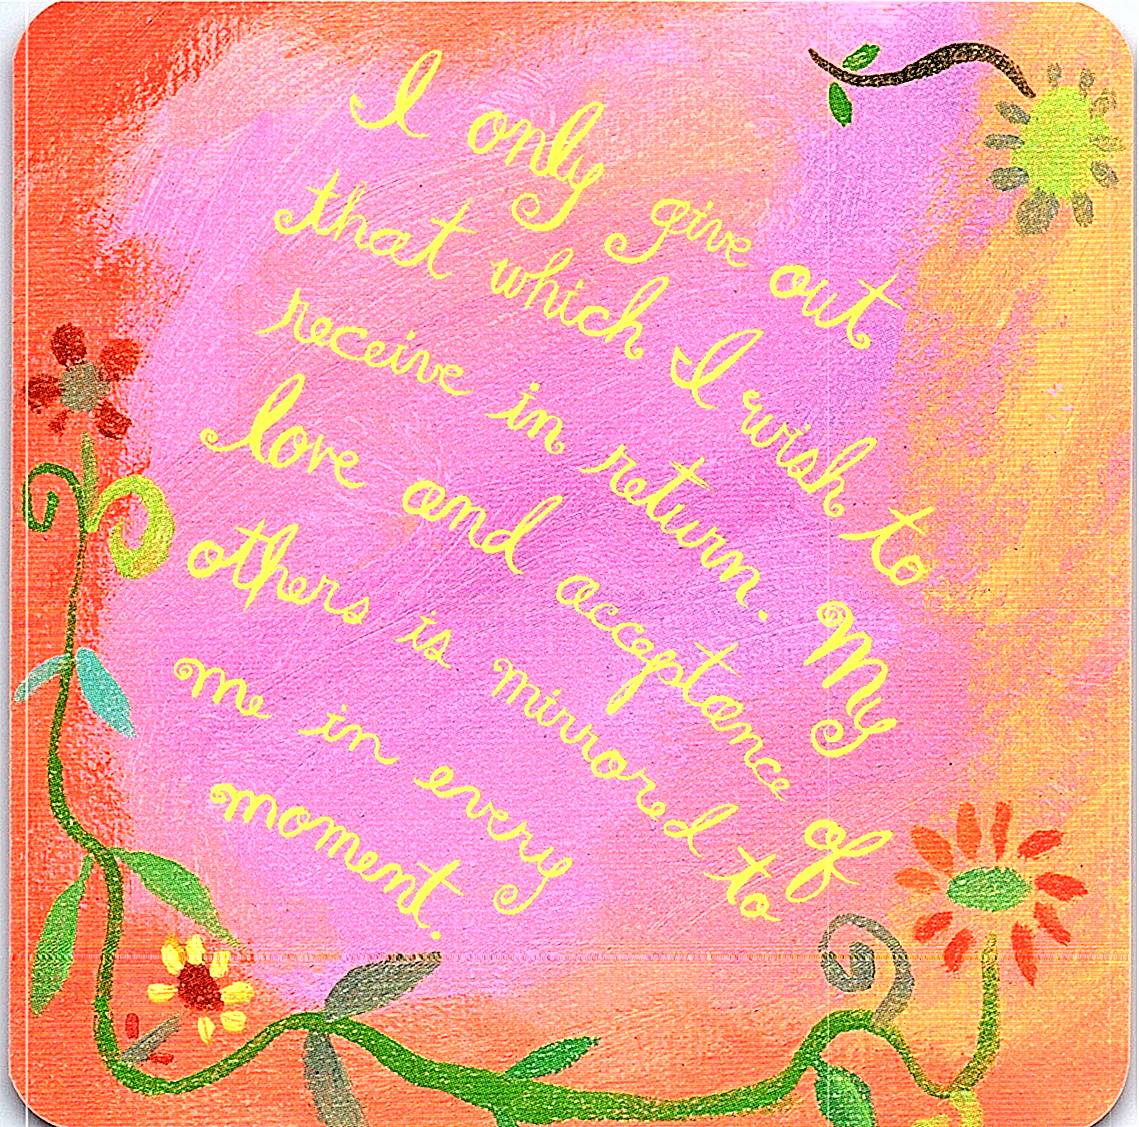 I only give out
that which I wish to
receive in return. My
love and acceptance of
others is mirrored to
me in every
moment.